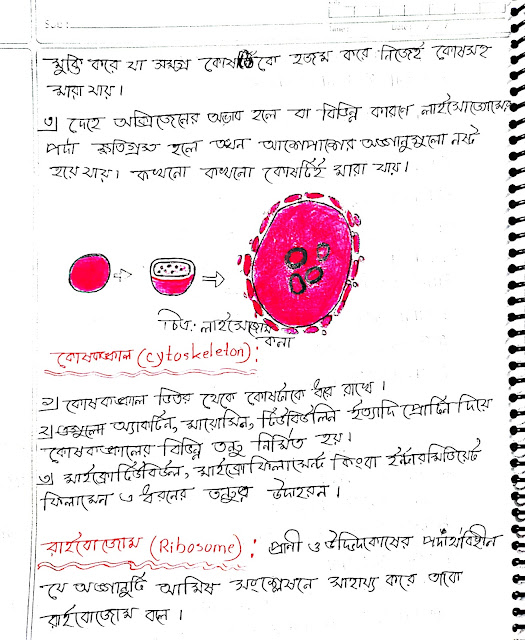 Sub :
মুক্তি করে যা সমগ্র কোষটিকে হজম করে নিজেই কোষসহ
মারা যায়।
৩) দেহে অক্সিজেনের অভাব হলে বা বিভিন্ন কারণে লাইসোজোমের
পর্দা ক্ষতিগ্রস্ত হলে তখন আশেপাশের অঙ্গানুগুলো নষ্ট
হয়ে যায়। কখনো কখনো কোষটিই মারা যায়।
চিত্র: লাইসোজোম
কনা
কোষকঙ্কাল (cytoskeleton):
১) কোষকঙ্কাল ভিতর থেকে কোষটাকে ধরে রাখে।
২) এগুলো অ্যাকটিন, মায়োসিন, টিউবিউলিন ইত্যাদি প্রোটিন দিয়ে
কোষকঙ্কালের বিভিন্ন তন্তু নির্মিত হয়।
৩) মাইক্রোটিউবিউল, মাইক্রোফিলামেন্ট কিংবা ইন্টারমিডিয়েট
ফিলামেন্ট এ ধরনের তন্তুর উদাহরন।
রাইবোজোম (Ribosome): প্রানী ও উদ্ভিদকোষের পর্দাবিহীন
যে অঙ্গানুটি আমিষ সংশ্লেষনে সাহায্য করে তাকে
রাইবোজোম বলে।